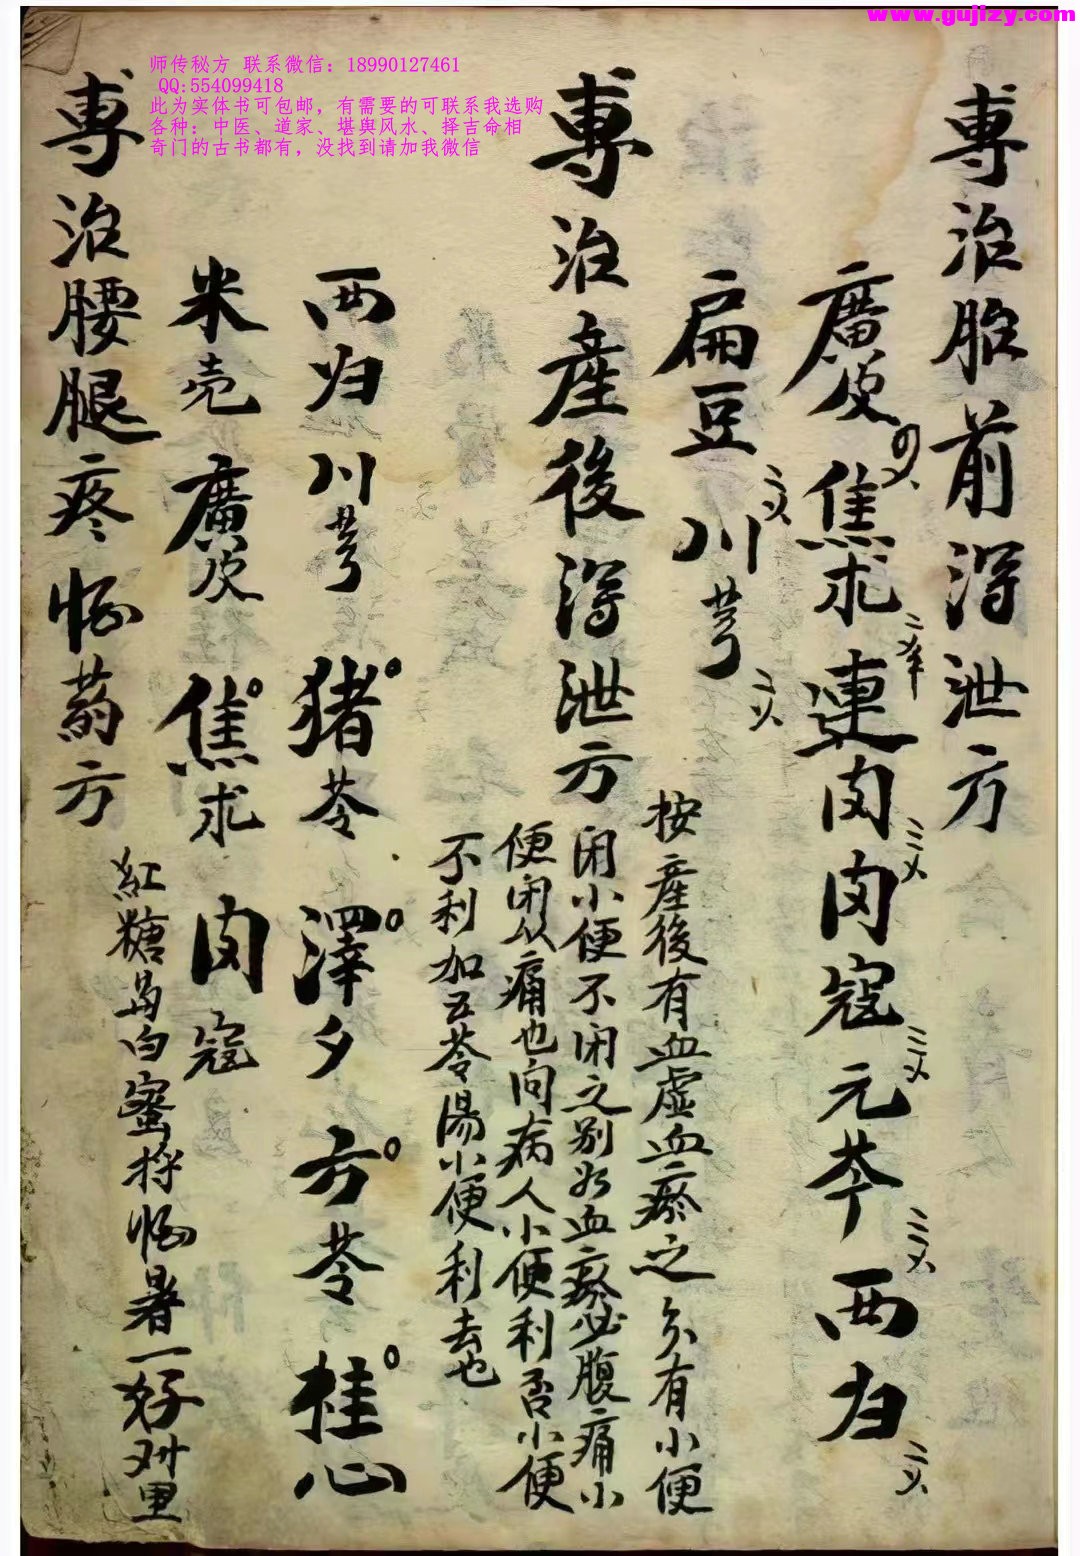 www.gujizy.com
师传秘方 联系微信：18990127461
QQ:554099418
此为实体书可包邮，有需要的可联系我选购
各种：中医、道家、堪舆风水、择吉命相
奇门的古书都有，没找到请加我微信
專治胎前泻泄方
廣皮 焦术 連肉 肉寇 元芩 西归
扁豆 川芎
專治産後泻泄方
按産後有血虚血瘀之分有小便
闭小便不闭之别如血瘀必腹痛小
便闭以痛也问病人小便利否小便
不利加五苓湯小便利去也
西归 川芎 猪苓 澤夕 方苓 桂心
米壳 廣皮 焦术 肉寇
專治腰腿疼 药方
紅糖 白蜜 一好